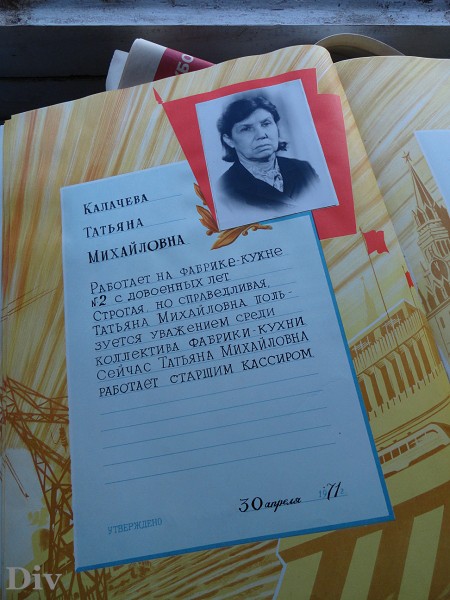 Калачева
Татьяна
Михайловна
Работает на фабрике-кухне
№2 с довоенных лет
Строгая, но справедливая,
Татьяна Михайловна поль-
зуется уважением среди
коллектива фабрики-кухни
Сейчас Татьяна Михайловна
работает старшим кассиром
30 апреля 1971г.
УТВЕРЖДЕНО
Div